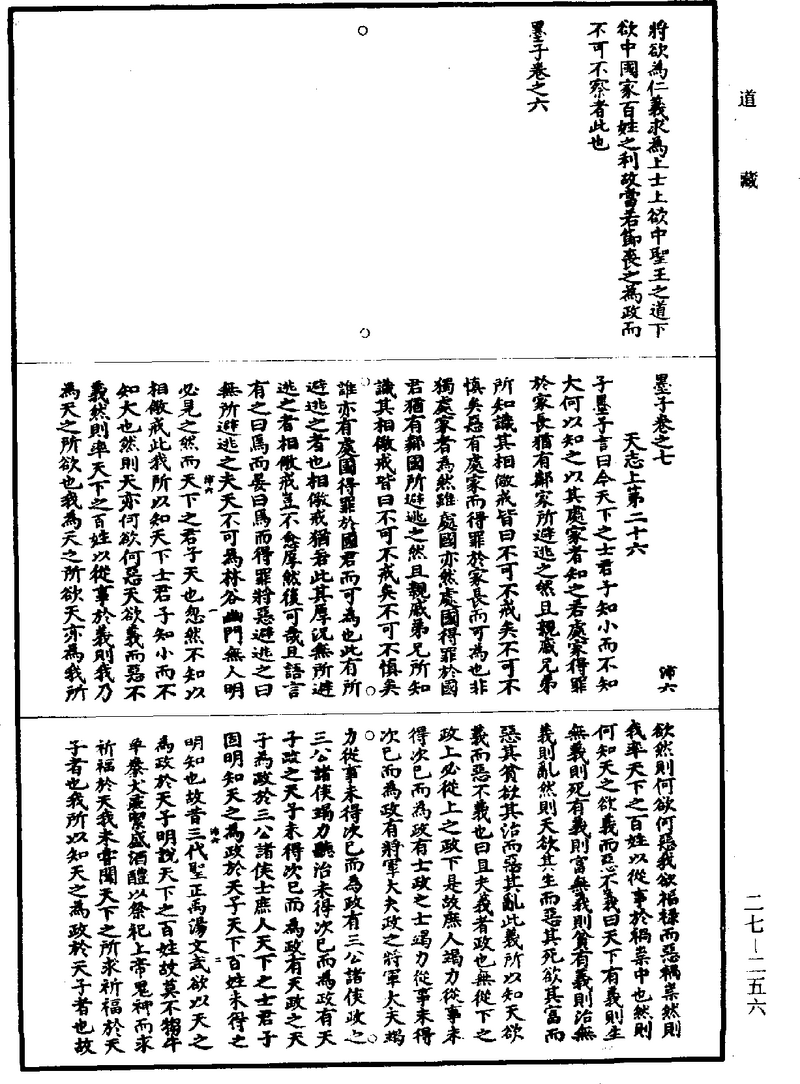 道藏
將欲為仁義求為上士上欲中聖王之道下
欲中國家百姓之利故當若節喪之為政而
不可不察者此也
墨子卷之六
墨子卷之七
沛六
天志上第二十六
子墨子言曰今天下之士君子知小而不知
大何以知之以其處家者知之若處家得罪
於家長猶有鄰家所避逃之然且親戚兄弟
所知識其相儆戒皆曰不可不戒矣不可不
慎矣惡有處家而得罪於家長而可為也非
獨處家者為然雖處國亦然處國得罪於國
君猶有鄰國所避逃之然且親戚弟兄所知
識其相儆戒皆曰不可不戒矣不可不慎矣
誰亦有處國得罪於國君而可為也此有所
避逃之者也相儆戒猶若此其厚況無所避
逃之者相儆戒豈不愈厚然後可哉且語言
有之曰焉而晏曰焉而得罪將惡避逃之曰
無所避逃之夫天不可為林谷幽門無人明
必見之然而天下之君子天也忽然不知以
相儆戒此我所以知天下士君子知小而不
知大也然則天亦何欲何惡天欲義而惡不
義然則率天下之百姓以從事於義則我乃
為天之所欲也我為天之所欲天亦為我所
沛六
一
欲然則何欲何惡我欲福祿而惡禍祟然則
我率天下之百姓以從事於禍祟中也然則
何知天之欲義而惡不義曰天下有義則生
無義則死有義則富無義則貧有義則治無
義則亂然則天欲其生而惡其死欲其富而
惡其貧欲其治而惡其亂此義所以知天欲
義而惡不義也曰且夫義者政也無從下之
政上必從上之政下是故庶人竭力從事未
得次已而為政有士政之士竭力從事未得
次已而為政有將軍大夫政之將軍大夫竭
力從事未得次已而為政有三公諸侯政之
三公諸侯竭力聽治未得次已而為政有天
子政之天子未得次已而為政有天政之天
子為政於三公諸侯士庶人天下之士君子
固明知天之為政於天子天下百姓未得之
明知也故昔三代聖正禹湯文武欲以天之
為政於天子明說天下之百姓故莫不犓牛
羊豢犬彘潔盛酒醴以祭祀上帝鬼神而求
祈福於天我未嘗聞天下之所求祈福於天
子者也我所以知天之為政於天子者也故
沛六
二
二七—二五六